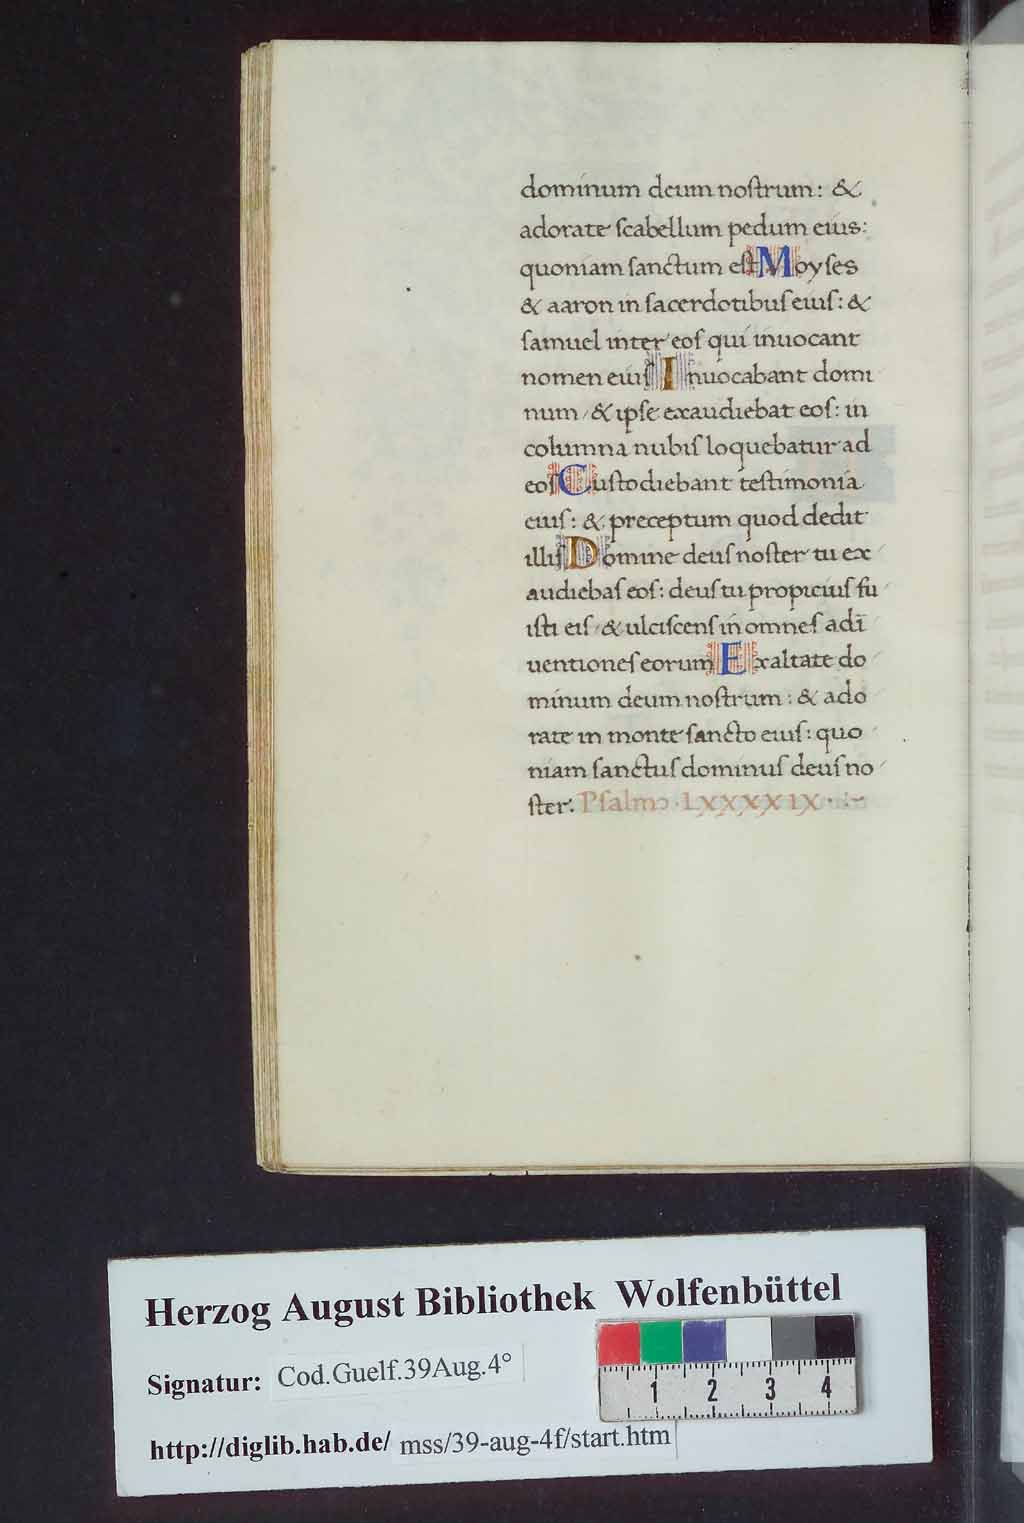 dominum deum noſtrum: &
adorate ſcabellum pedum eius:
quoniam ſanctum eſt Moyſes
& aaron in ſacerdotibuſ eiuſ: &
ſamuel inter eoſ qui inuocant
nomen eiuſ Inuocabant domi
num / & ipſe exaudiebat eoſ: in
columna nubiſ loquebatur ad
eoſ Cuſtodiebant teſtimonia
eiuſ: & preceptum quod dedit
illiſ Domine deuſ noſter tu ex
audiebaſ eoſ: deuſ tu propiciuſ fu
iſti eiſ / & ulciſcenſ in omneſ adī
uentioneſ eorum Exaltate do
minum deum noſtrum: & ado
rate in monte ſancto eiuſ: quo
niam ſanctuſ dominuſ deuſ no
ſter. Pſalmꝰ. LXXXXIX
Herzog August Bibliothek Wolfenbüttel
Signatur: Cod.Guelf.39Aug.4°
1 2 3 4
http://diglib.hab.de/ mss/39-aug-4f/start.htm